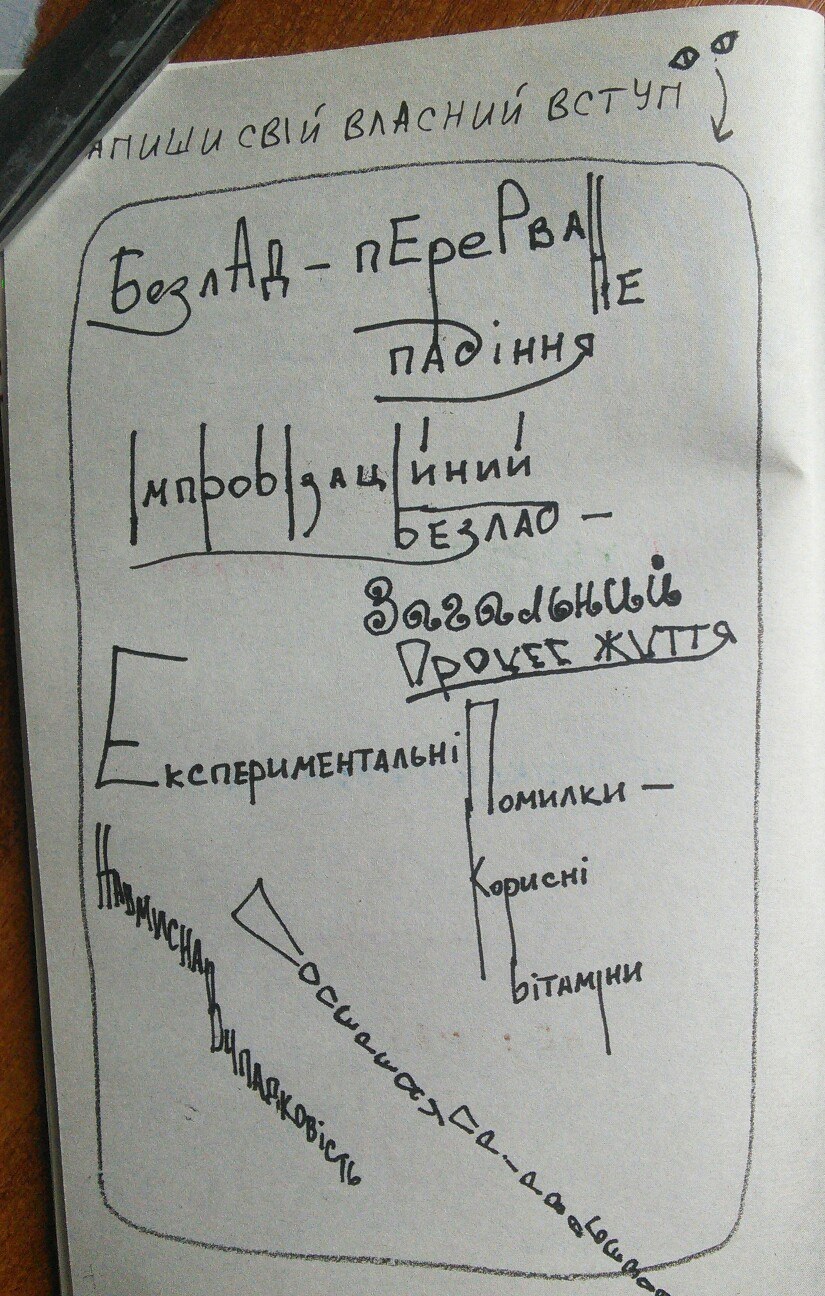 АПИШИ СВІЙ ВЛАСНИЙ ВСТУП
БезлАД – пЕреРвАНЕ
пАдіння
Імпровізаційний
БЕЗЛАД –
Загальний
Процес життя
Експериментальні
Помилки –
Корисні
вітаміни
Навмисна
Випадковість